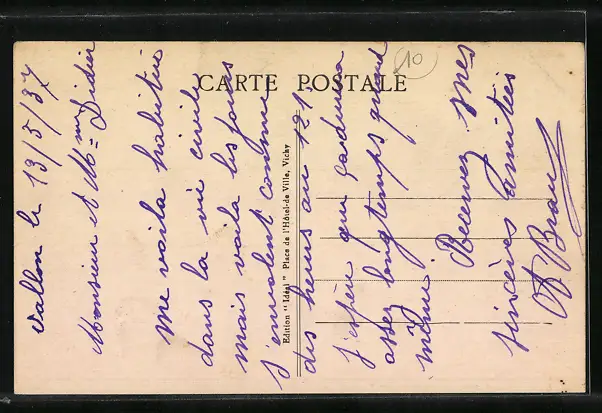 CARTE POSTALE
10
Edition "Idéal" Place de l'Hôtel-de Ville, Vichy
Vallon le 13/5/37
Monsieur et Mme Didier
Me voila habitué
dans la vie civile
mais voila les jours
s'envolent comme
des heures au 121
j'espère que gardera
assez longtemps quand
même. Recevez mes
sincères amitiés
A Brau